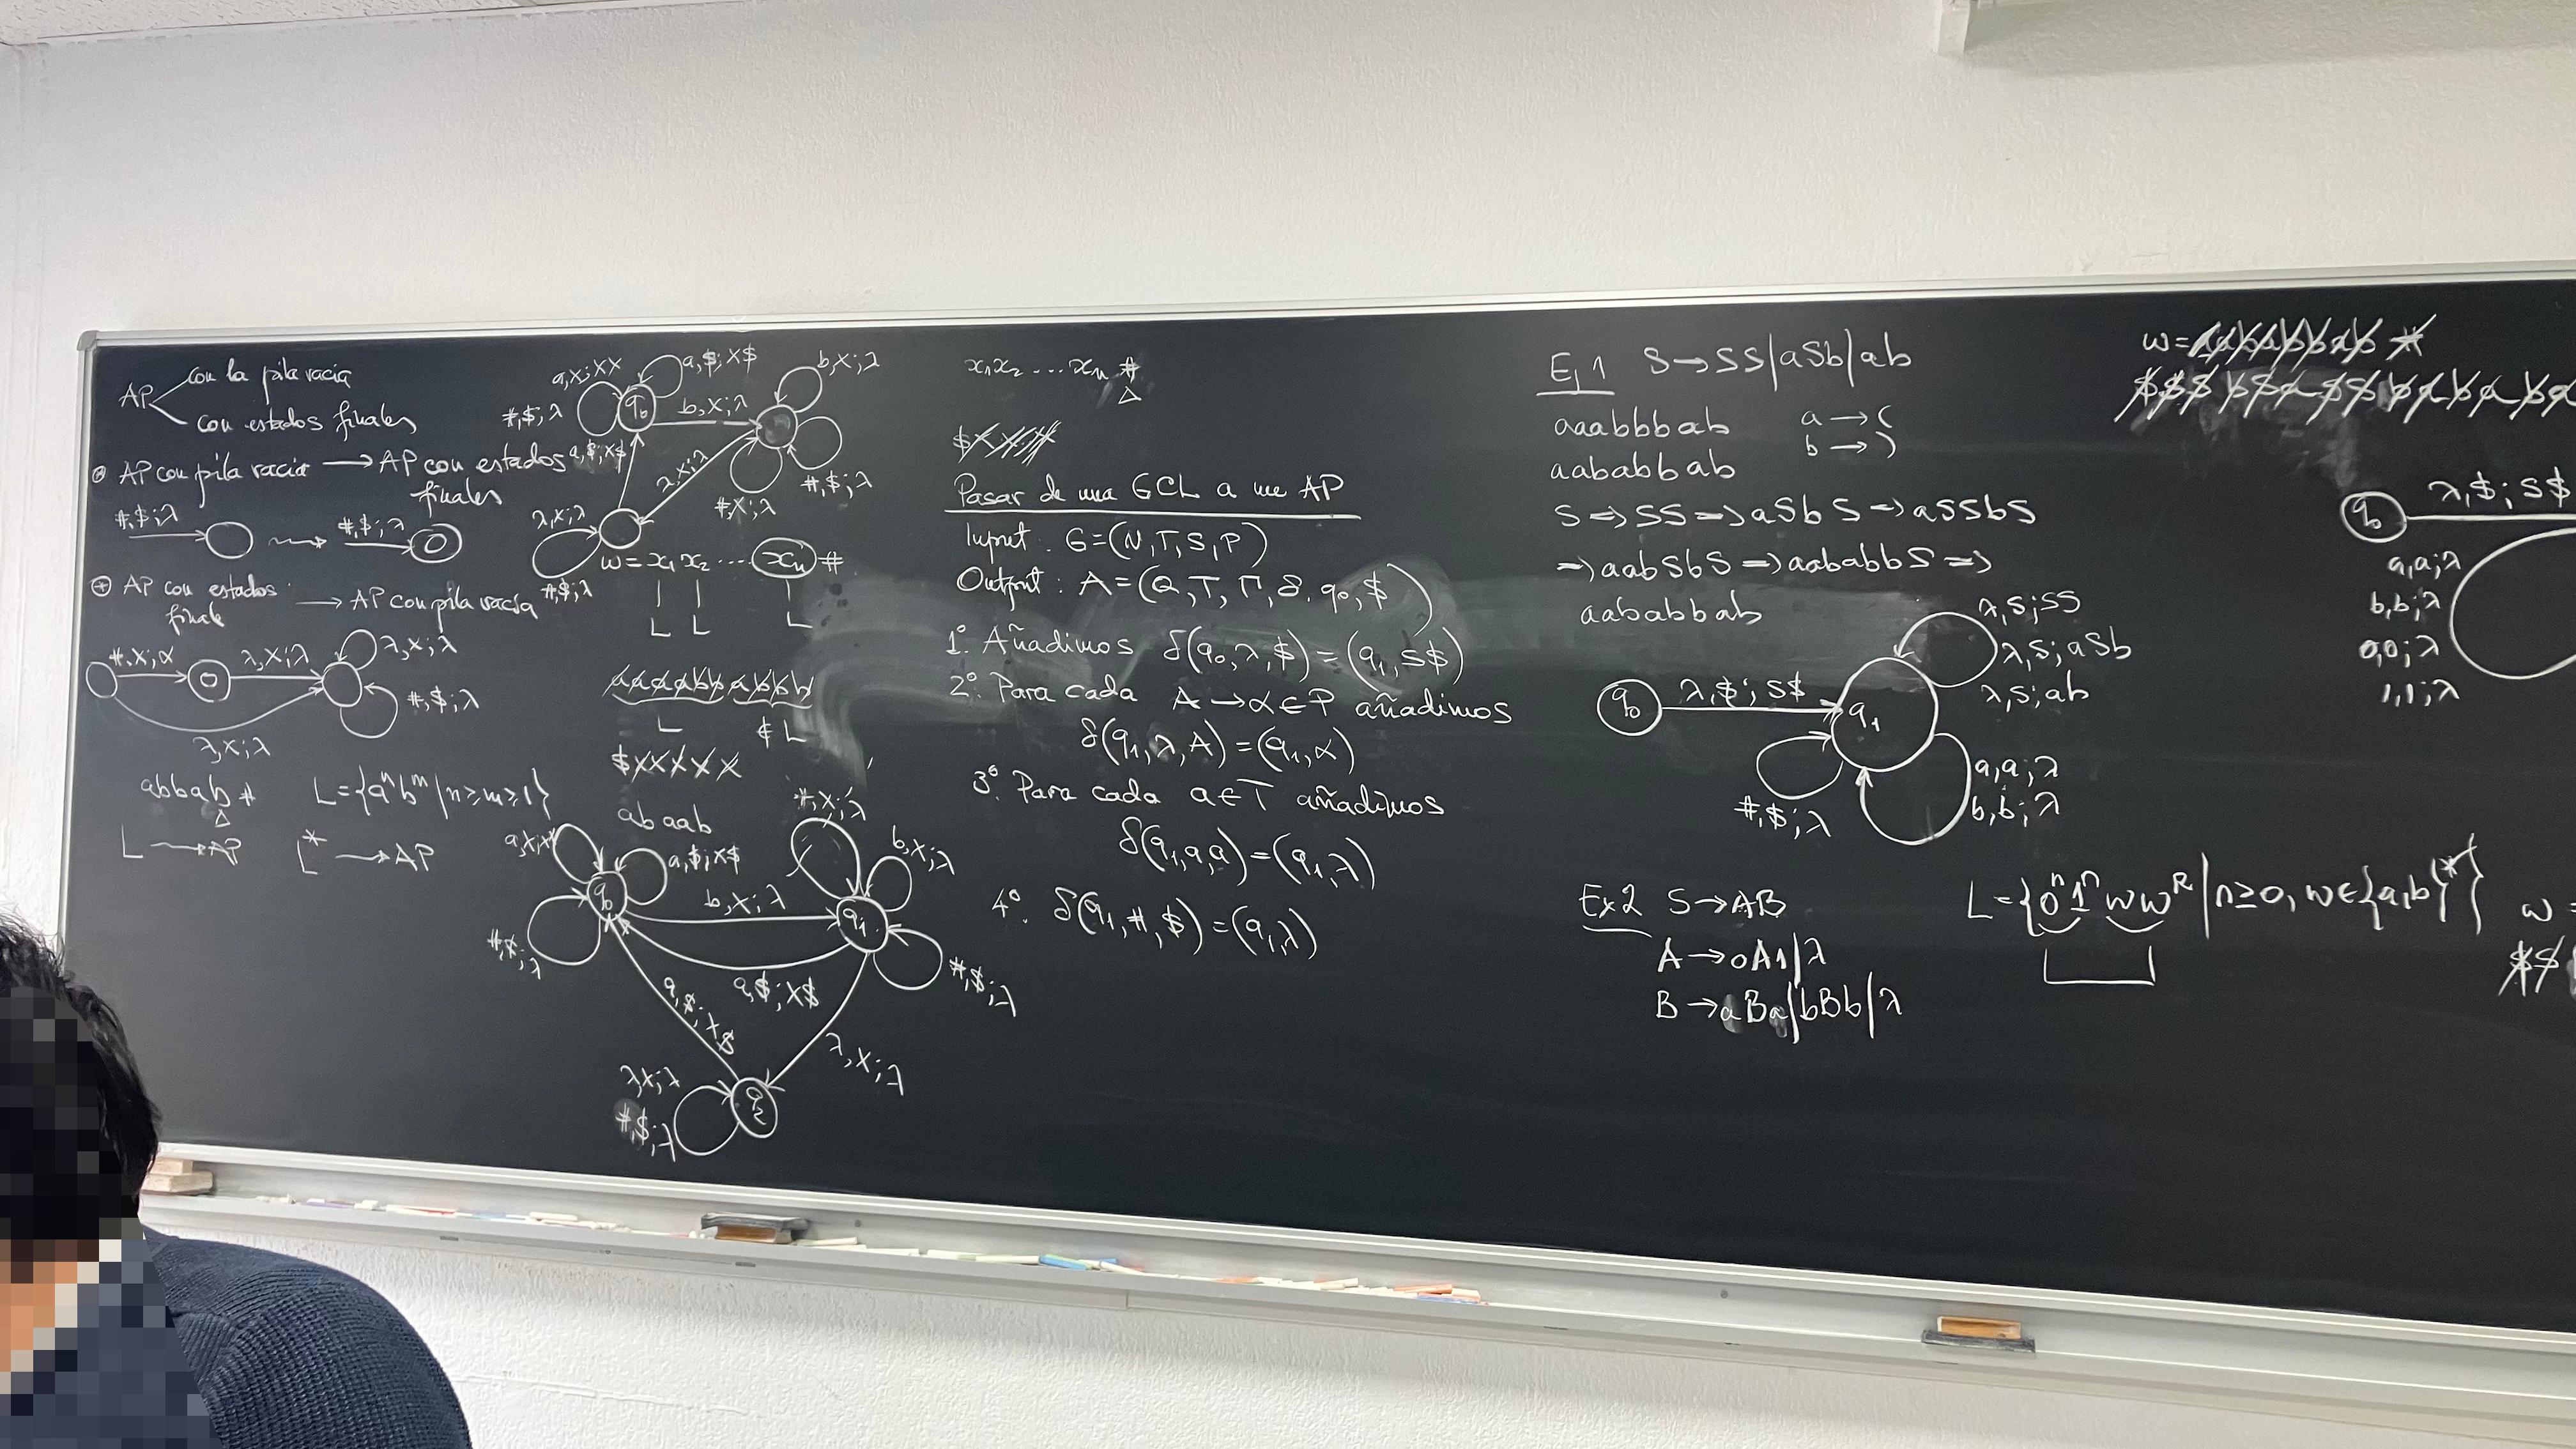 AP
con la pila vacía
con estados finales
⊕ AP con pila vacia → AP con estados
finales
#,$;λ
#,$;λ
⊕ AP con estados
finale → AP con pila vacía
#,x;α
λ,x;λ
λ,x;λ
#,$;λ
λ,x;λ
abbab#
Δ
L={aⁿbᵐ|n≥m≥1}
L → AP
L* → AP
a,x;xx
a,$;x$
b,x;λ
#,$;λ
q₀
b,x;λ
a,$;x$
λ,x;λ
#,x;λ
#,$;λ
λ,x;λ
#,$;λ
w=x₁x₂...xₙ#
L L L
aaaabbabbb
L ¢L
$xxxxx
abaab
a,x;x
a,$;x$
#,x;λ
b,x;λ
q₀
b,x;λ
q₁
#,$;λ
a,$;x$
#,$;λ
a,$;x$
λ,x;λ
λ,x;λ
#,$;λ
q₂
x₁x₂...xₙ#
Δ
Pasar de una GCL a un AP
Input: G=(N,T,S,P)
Output: A=(Q,T,Γ,δ,q₀,$)
1º. Añadimos δ(q₀,λ,$)=(q₁,S$)
2º. Para cada A→α∈P añadimos
δ(q₁,λ,A)=(q₁,α)
3º. Para cada a∈T añadimos
δ(q₁,a,a)=(q₁,λ)
4º. δ(q₁,#,$)=(q₁,λ)
Ej1 S→SS|aSb|ab
aaabbbab
a→(
b→)
aababbab
S⇒SS⇒aSbS⇒aSSbS
⇒aabSbS⇒aababbS⇒
aababbab
q₀
λ,$;S$
q₁
λ,S;SS
λ,S;aSb
λ,S;ab
a,a;λ
b,b;λ
#,$;λ
Ex2 S→AB
A→0A1|λ
B→aBa|bBb|λ
L={0ⁿ1ⁿwwᴿ|n≥0,w∈{a,b}*}
w=
q₀
λ,$;S$
a,a;λ
b,b;λ
0,0;λ
1,1;λ
w=